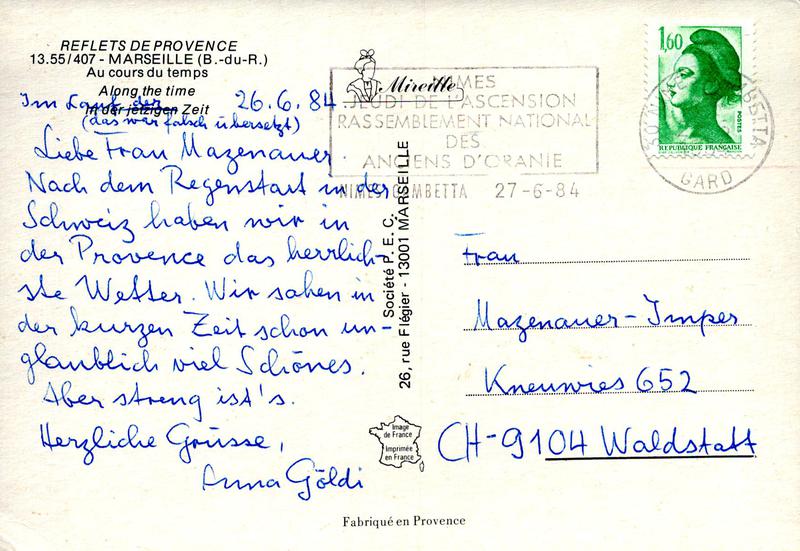 REFLETS DE PROVENCE
13.55/407 - MARSEILLE (B.-du-R.)
Au cours du temps
Along the time
In der jetzigen Zeit
Im Lauf der
(das war falsch übersetzt)
26.6.84
Liebe Frau Mazenauer.
Nach dem Regenstart in der
Schweiz haben wir in
der Provence das herrlich-
ste Wetter. Wir sahen in
der kurzen Zeit schon un-
glaublich viel Schönes.
Aber streng ist's.
Herzliche Grüsse,
Anna Göldi
Mireille
NIMES
JEUDI DE L'ASCENSION
RASSEMBLEMENT NATIONAL
DES
ANCIENS D'ORANIE
NIMES GAMBETTA 27-6-84
1,60
POSTES
REPUBLIQUE FRANÇAISE
GARD
Société P.E.C.
26, rue Flégier - 13001 MARSEILLE
Frau
Mazenauer-Imper
Kneuwies 652
CH-9104 Waldstatt
Image
de France
Imprimée
en France
Fabriqué en Provence